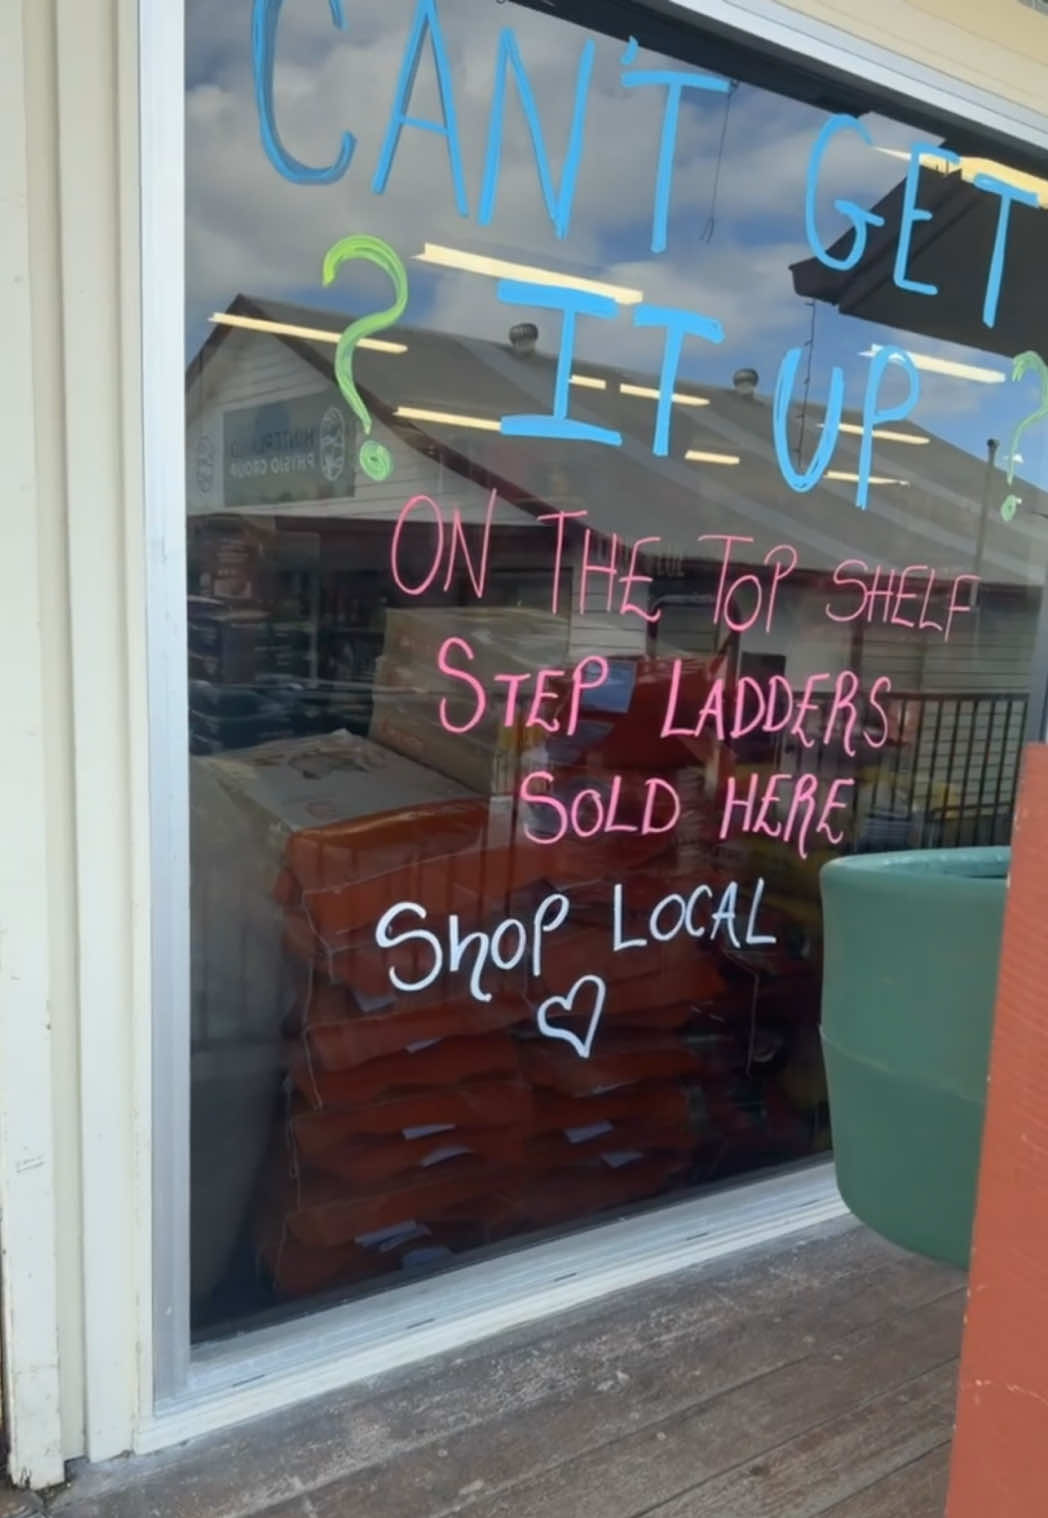 CAN'T GET
? IT UP ?
ON THE TOP SHELF
STEP LADDERS
SOLD HERE
Shop LOCAL
HINTERLAND
PHYSIO GROUP